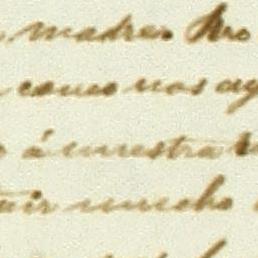 madre. Pro
como nos ay
á nuestra
uir mucho